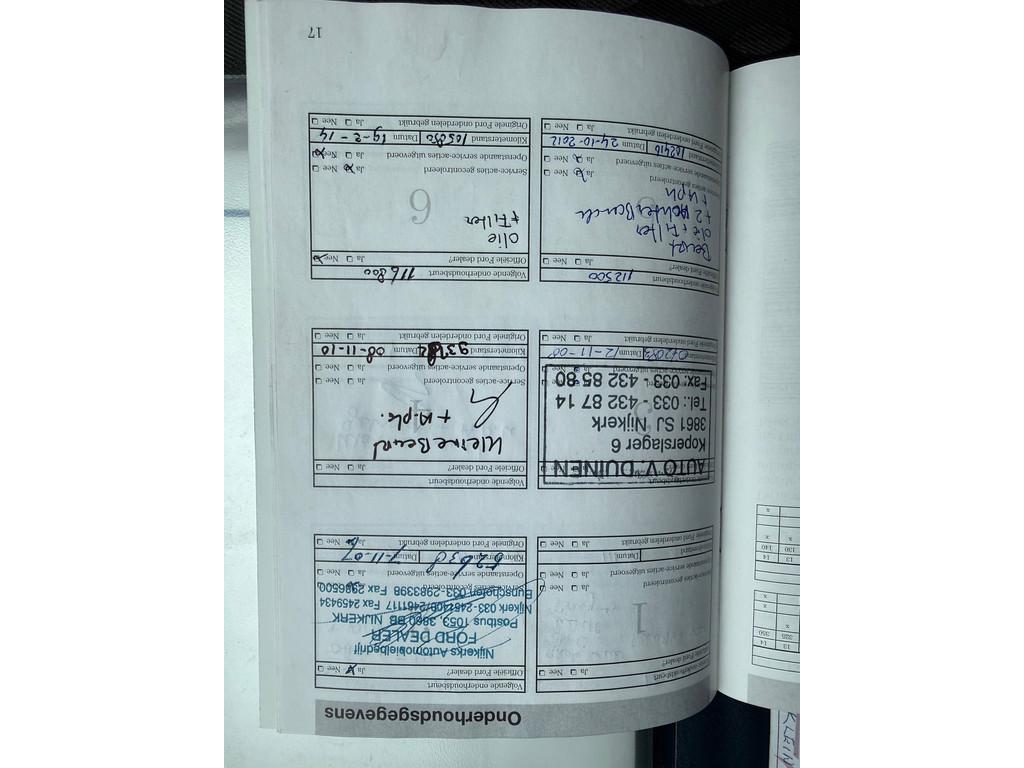 Onderhoudsgegevens
1
Officiële Ford dealer? Ja Nee
Service-acties gecontroleerd Ja Nee
Openstaande service-acties uitgevoerd Ja Nee
Datum
Originele Ford onderdelen gebruikt Ja Nee
Volgende onderhoudsbeurt
Officiële Ford dealer? Ja Nee
Nijkerks Automobielbedrijf
FORD DEALER
Postbus 1053, 3860 BB NIJKERK
Nijkerk 033-
Fax 2459434
Bunschoten 033-2983398 Fax 2986500
Openstaande service-acties uitgevoerd Ja Nee
Kilometerstand 52638 Datum 7-11-07
Originele Ford onderdelen gebruikt Ja Nee
AUTO V DUINEN
Koperslager 6
3861 SJ Nijkerk
Tel.: 033 - 432 87 14
Fax: 033 - 432 85 80
Datum 12-11-08
Originele Ford onderdelen gebruikt Ja Nee
Volgende onderhoudsbeurt
Officiële Ford dealer? Ja Nee
Kleine Beurt
+ A.pk.
Service-acties gecontroleerd Ja Nee
Openstaande service-acties uitgevoerd Ja Nee
Kilometerstand Datum 08-11-10
Originele Ford onderdelen gebruikt Ja Nee
112500
Officiële Ford dealer? Ja Nee
Beurt
olie + Filter
+ 2 Achter Banden
+ Apk
Ja Nee
Openstaande service-acties uitgevoerd Ja Nee
102416 Datum 24-10-2012
Originele Ford onderdelen gebruikt Ja Nee
Volgende onderhoudsbeurt 116800
Officiële Ford dealer? Ja Nee
olie
+ Filter
6
Service-acties gecontroleerd Ja Nee
Openstaande service-acties uitgevoerd Ja Nee
Kilometerstand 105850 Datum 19-2-14
Originele Ford onderdelen gebruikt Ja Nee
17
13 14
320 350
x x
x
13 14
130 140
x x
x
KLEIN